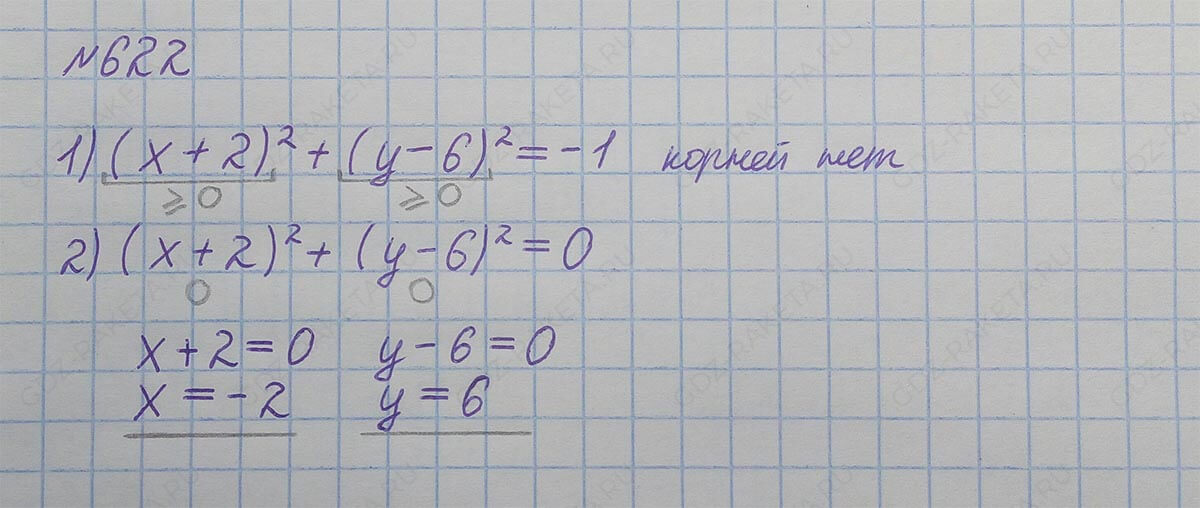 №622
1) (x + 2)² + (y − 6)² = −1 корней нет
≥0 ≥0
2) (x + 2)² + (y − 6)² = 0
0 0
x + 2 = 0 y − 6 = 0
x = −2 y = 6
GDZ-RAKETA.RU